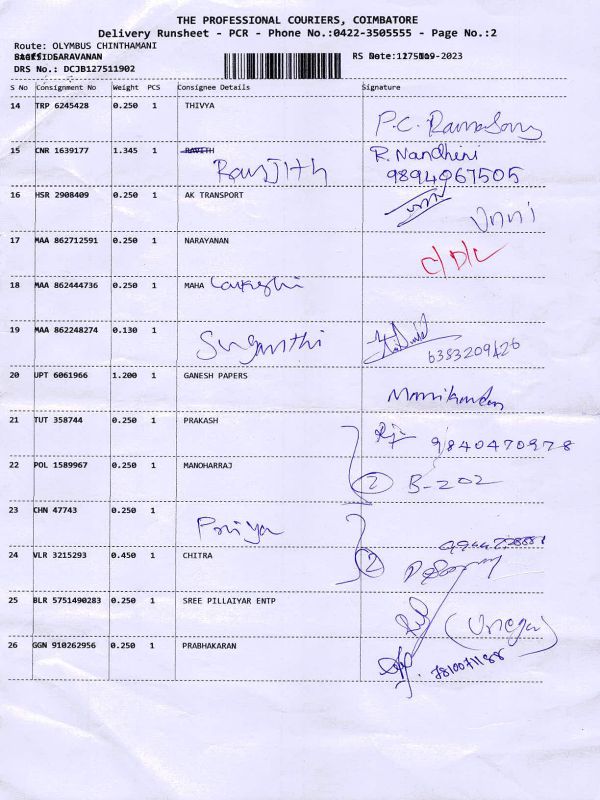 THE PROFESSIONAL COURIERS, COIMBATORE
Delivery Runsheet - PCR - Phone No.:0422-3505555 - Page No.:2
Route: OLYMBUS CHINTHAMANI
SARAVANAN RS Date: -2023
DRS No.: DCJB127511902
S No Consignment No Weight PCS Consignee Details Signature
14 TRP 6245428 0.250 1 THIVYA
15 CNR 1639177 1.345 1 RAVITH R. Nandhini
Ranjith 9894067505
16 HSR 2908409 0.250 1 AK TRANSPORT
Unni
17 MAA 862712591 0.250 1 NARAYANAN
C/D/L
18 MAA 862444736 0.250 1 MAHA
19 MAA 862248274 0.130 1
Suganthi 6383209426
20 UPT 6061966 1.200 1 GANESH PAPERS
Manikandan
21 TUT 358744 0.250 1 PRAKASH
9840470978
22 POL 1589967 0.250 1 MANOHARRAJ
2 B-202
23 CHN 47743 0.250 1
Priya
24 VLR 3215293 0.450 1 CHITRA 2
25 BLR 5751490283 0.250 1 SREE PILLAIYAR ENTP
26 GGN 910262956 0.250 1 PRABHAKARAN